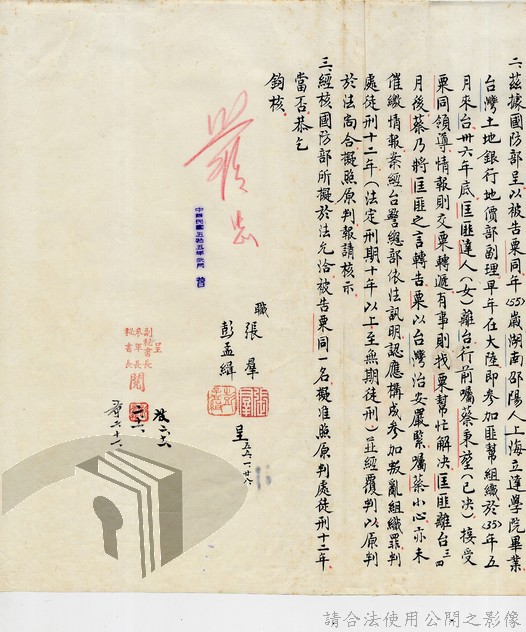 二、茲據國防部呈以被告粟同年(55)歲湖南邵陽人上海立達學院畢業
台灣土地銀行地價部副理早年在大陸即參加匪幫組織於(35)年五
月來台卅六年底匡匪達人(女)離台行前囑蔡秉堃(已決)接受
粟同領導情報則交粟轉遞有事則找粟幫忙解決匡匪離台三四
月後蔡乃將匡匪之言轉告粟以台灣治安嚴緊囑蔡小心亦未
催繳情報案經台警總部依法訊明認應構成參加叛亂組織罪判
處徒刑十二年(法定刑期十年以上至無期徒刑)並經覆判以原判
於法尚合擬照原判報請核示
三、經核國防部所擬於法允洽被告粟同一名擬准照原判處徒刑十二年
當否恭乞
鈞核
職 張羣
彭孟緝 呈 五六、一、廿八
呈
副秘書長
參軍長
秘書長 閱
請合法使用公開之影像